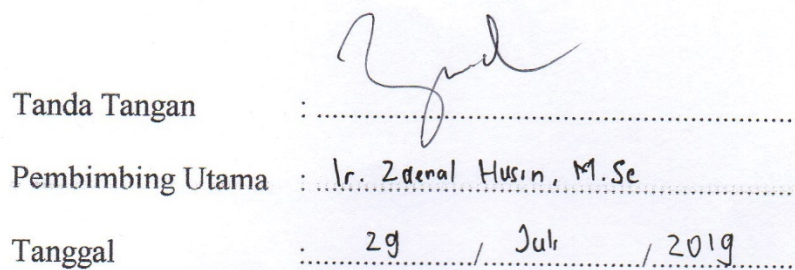 Tanda Tangan :
Pembimbing Utama : Ir. Zaenal Husin, M.Sc
Tanggal : 29 / Juli / 2019